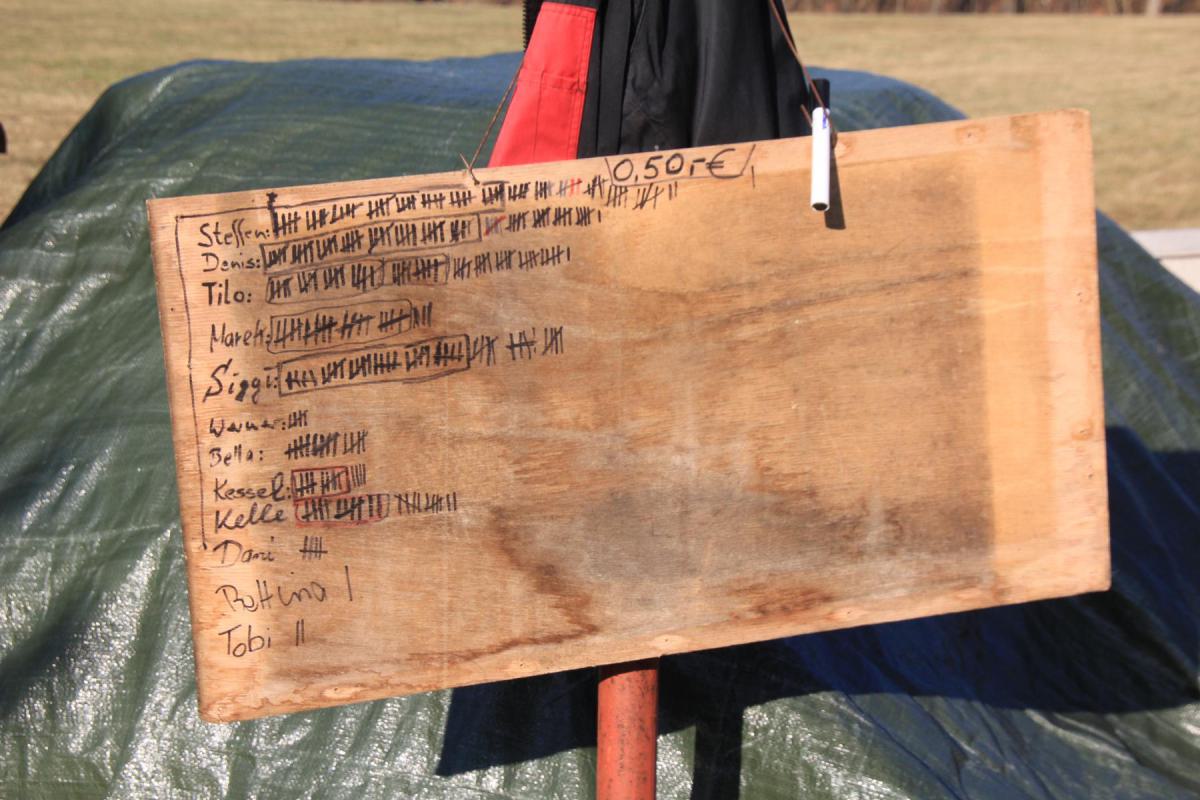 0,50,-€
Steffen:
Denis:
Tilo:
Marek:
Siggi:
Werner:
Bella:
Kessel:
Kelle
Dani
Bettina I
Tobi II